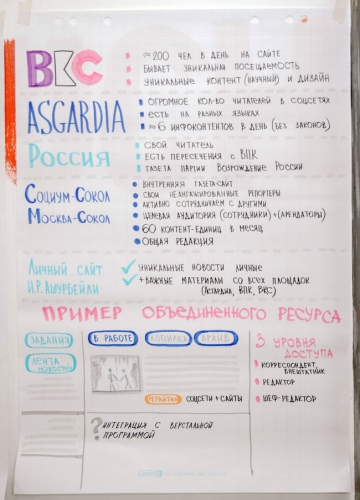 ВКС
≈ 200 ЧЕЛ В ДЕНЬ НА САЙТЕ
БЫВАЕТ УНИКАЛЬНАЯ ПОСЕЩАЕМОСТЬ
УНИКАЛЬНЫЕ КОНТЕНТ (НАУЧНЫЙ) И ДИЗАЙН
ASGARDIA
ОГРОМНОЕ КОЛ-ВО ЧИТАТЕЛЕЙ В СОЦСЕТЯХ
ЕСТЬ НА РАЗНЫХ ЯЗЫКАХ
≈ 6 ИНФОКОНТЕНТОВ В ДЕНЬ (БЕЗ ЗАКОНОВ)
РОССИЯ
СВОЙ ЧИТАТЕЛЬ
ЕСТЬ ПЕРЕСЕЧЕНИЯ С ВПК
ГАЗЕТА ПАРТИИ ВОЗРОЖДЕНИЕ РОССИИ
СОЦИУМ-СОКОЛ
МОСКВА-СОКОЛ
ВНУТРЕННЯЯ ГАЗЕТА-САЙТ
СВОИ НЕАНГАЖИРОВАННЫЕ РЕПОРТЕРЫ
АКТИВНО СОТРУДНИЧАЕМ С ДРУГИМИ
ЦЕЛЕВАЯ АУДИТОРИЯ (СОТРУДНИКИ)+(АРЕНДАТОРЫ)
60 КОНТЕНТ-ЕДИНИЦ В МЕСЯЦ
ОБЩАЯ РЕДАКЦИЯ
ЛИЧНЫЙ САЙТ
И.Р. АШУРБЕЙЛИ
УНИКАЛЬНЫЕ НОВОСТИ ЛИЧНЫЕ
+ВАЖНЫЕ МАТЕРИАЛЫ СО ВСЕХ ПЛОЩАДОК
(АСГАРДИА, ВПК, ВКС)
ПРИМЕР ОБЪЕДИНЕННОГО РЕСУРСА
ЗАДАНИЯ
ЛЕНТА
НОВОСТЕЙ
В РАБОТЕ
КОПИЛКА
АРХИВ
РЕРАЙТИНГ
СОЦСЕТИ + САЙТЫ
? ИНТЕГРАЦИЯ С ВЕРСТАЛЬНОЙ
ПРОГРАММОЙ
3 УРОВНЯ
ДОСТУПА
КОРРЕСПОНДЕНТ,
ВНЕШТАТНИК
РЕДАКТОР
ШЕФ-РЕДАКТОР